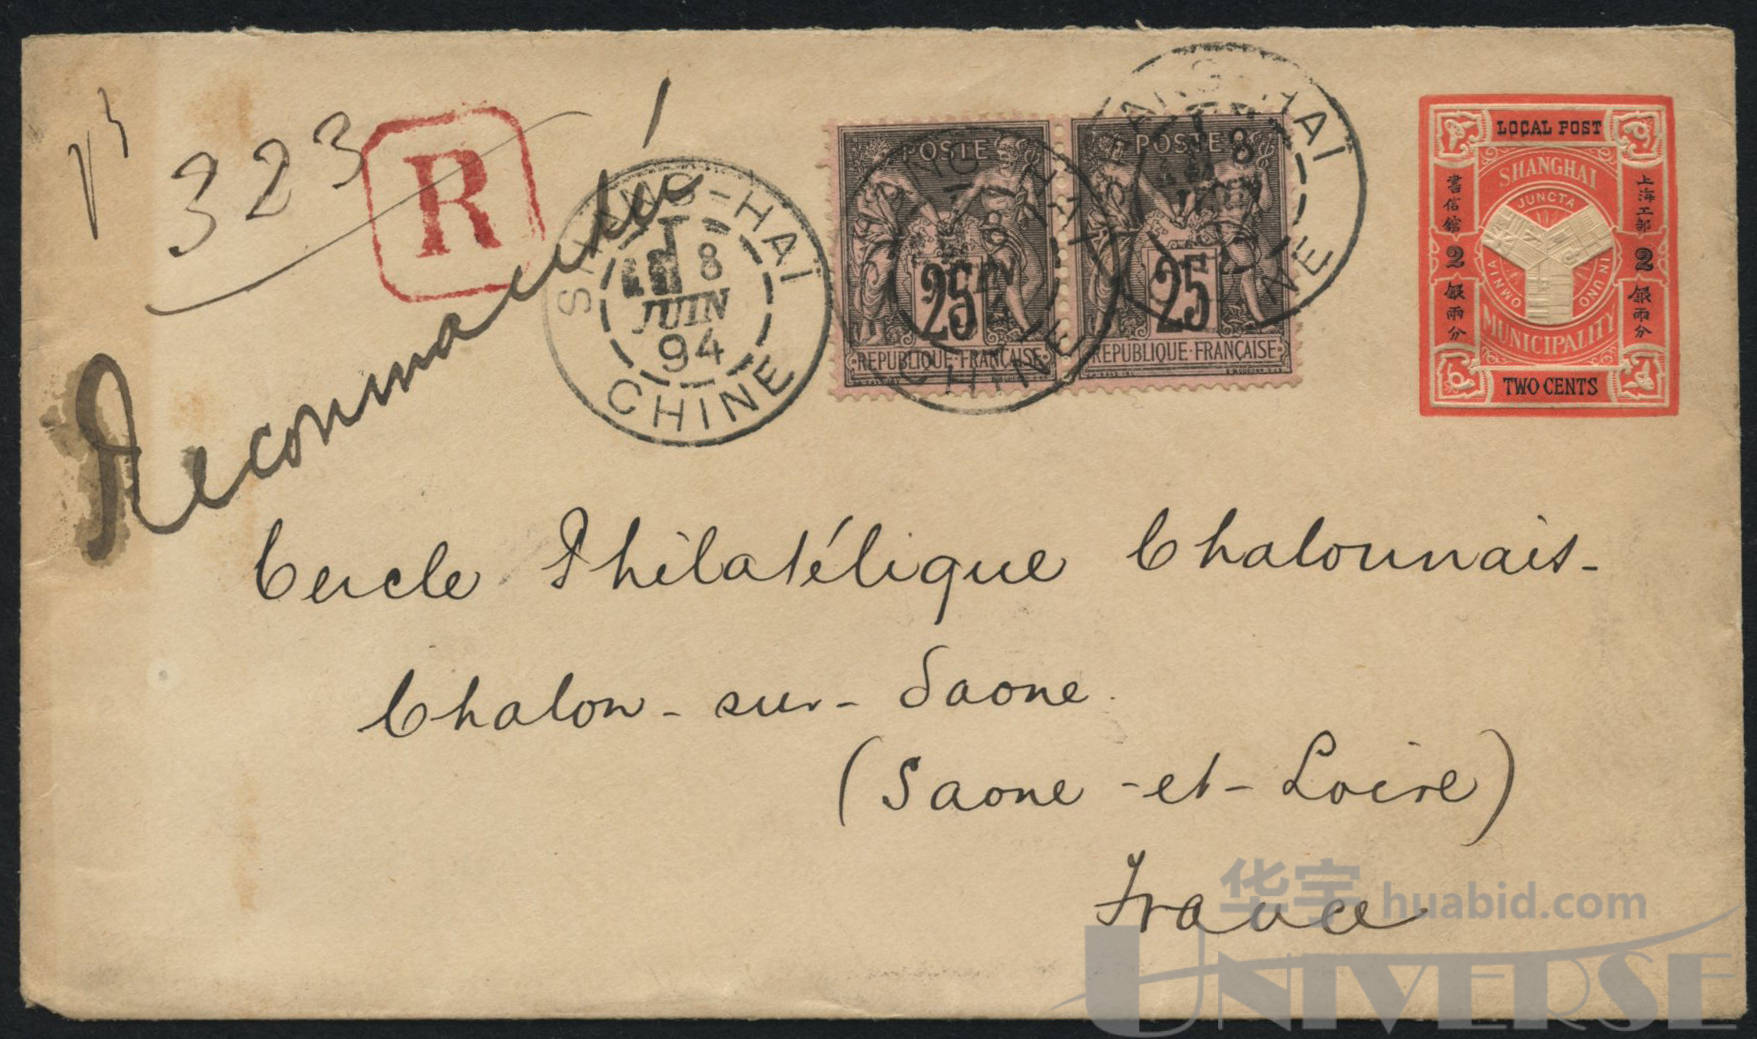 323
R
Recommandée
SHANG-HAÏ
1
8
JUIN
94
CHINE
POSTE
25
REPUBLIQUE·FRANÇAISE
POSTE
25
REPUBLIQUE·FRANÇAISE
CHINE
8
LOCAL POST
SHANGHAI
JUNCTA IN UNO OMNIA
MUNICIPALITY
TWO CENTS
上海工部
2
銀兩分
書信館
2
銀兩分
Cercle Philatélique Chalonnais-
Chalon-sur-Saone.
(Saone-et-Loire)
France
华宇 huabid.com
UNIVERSE